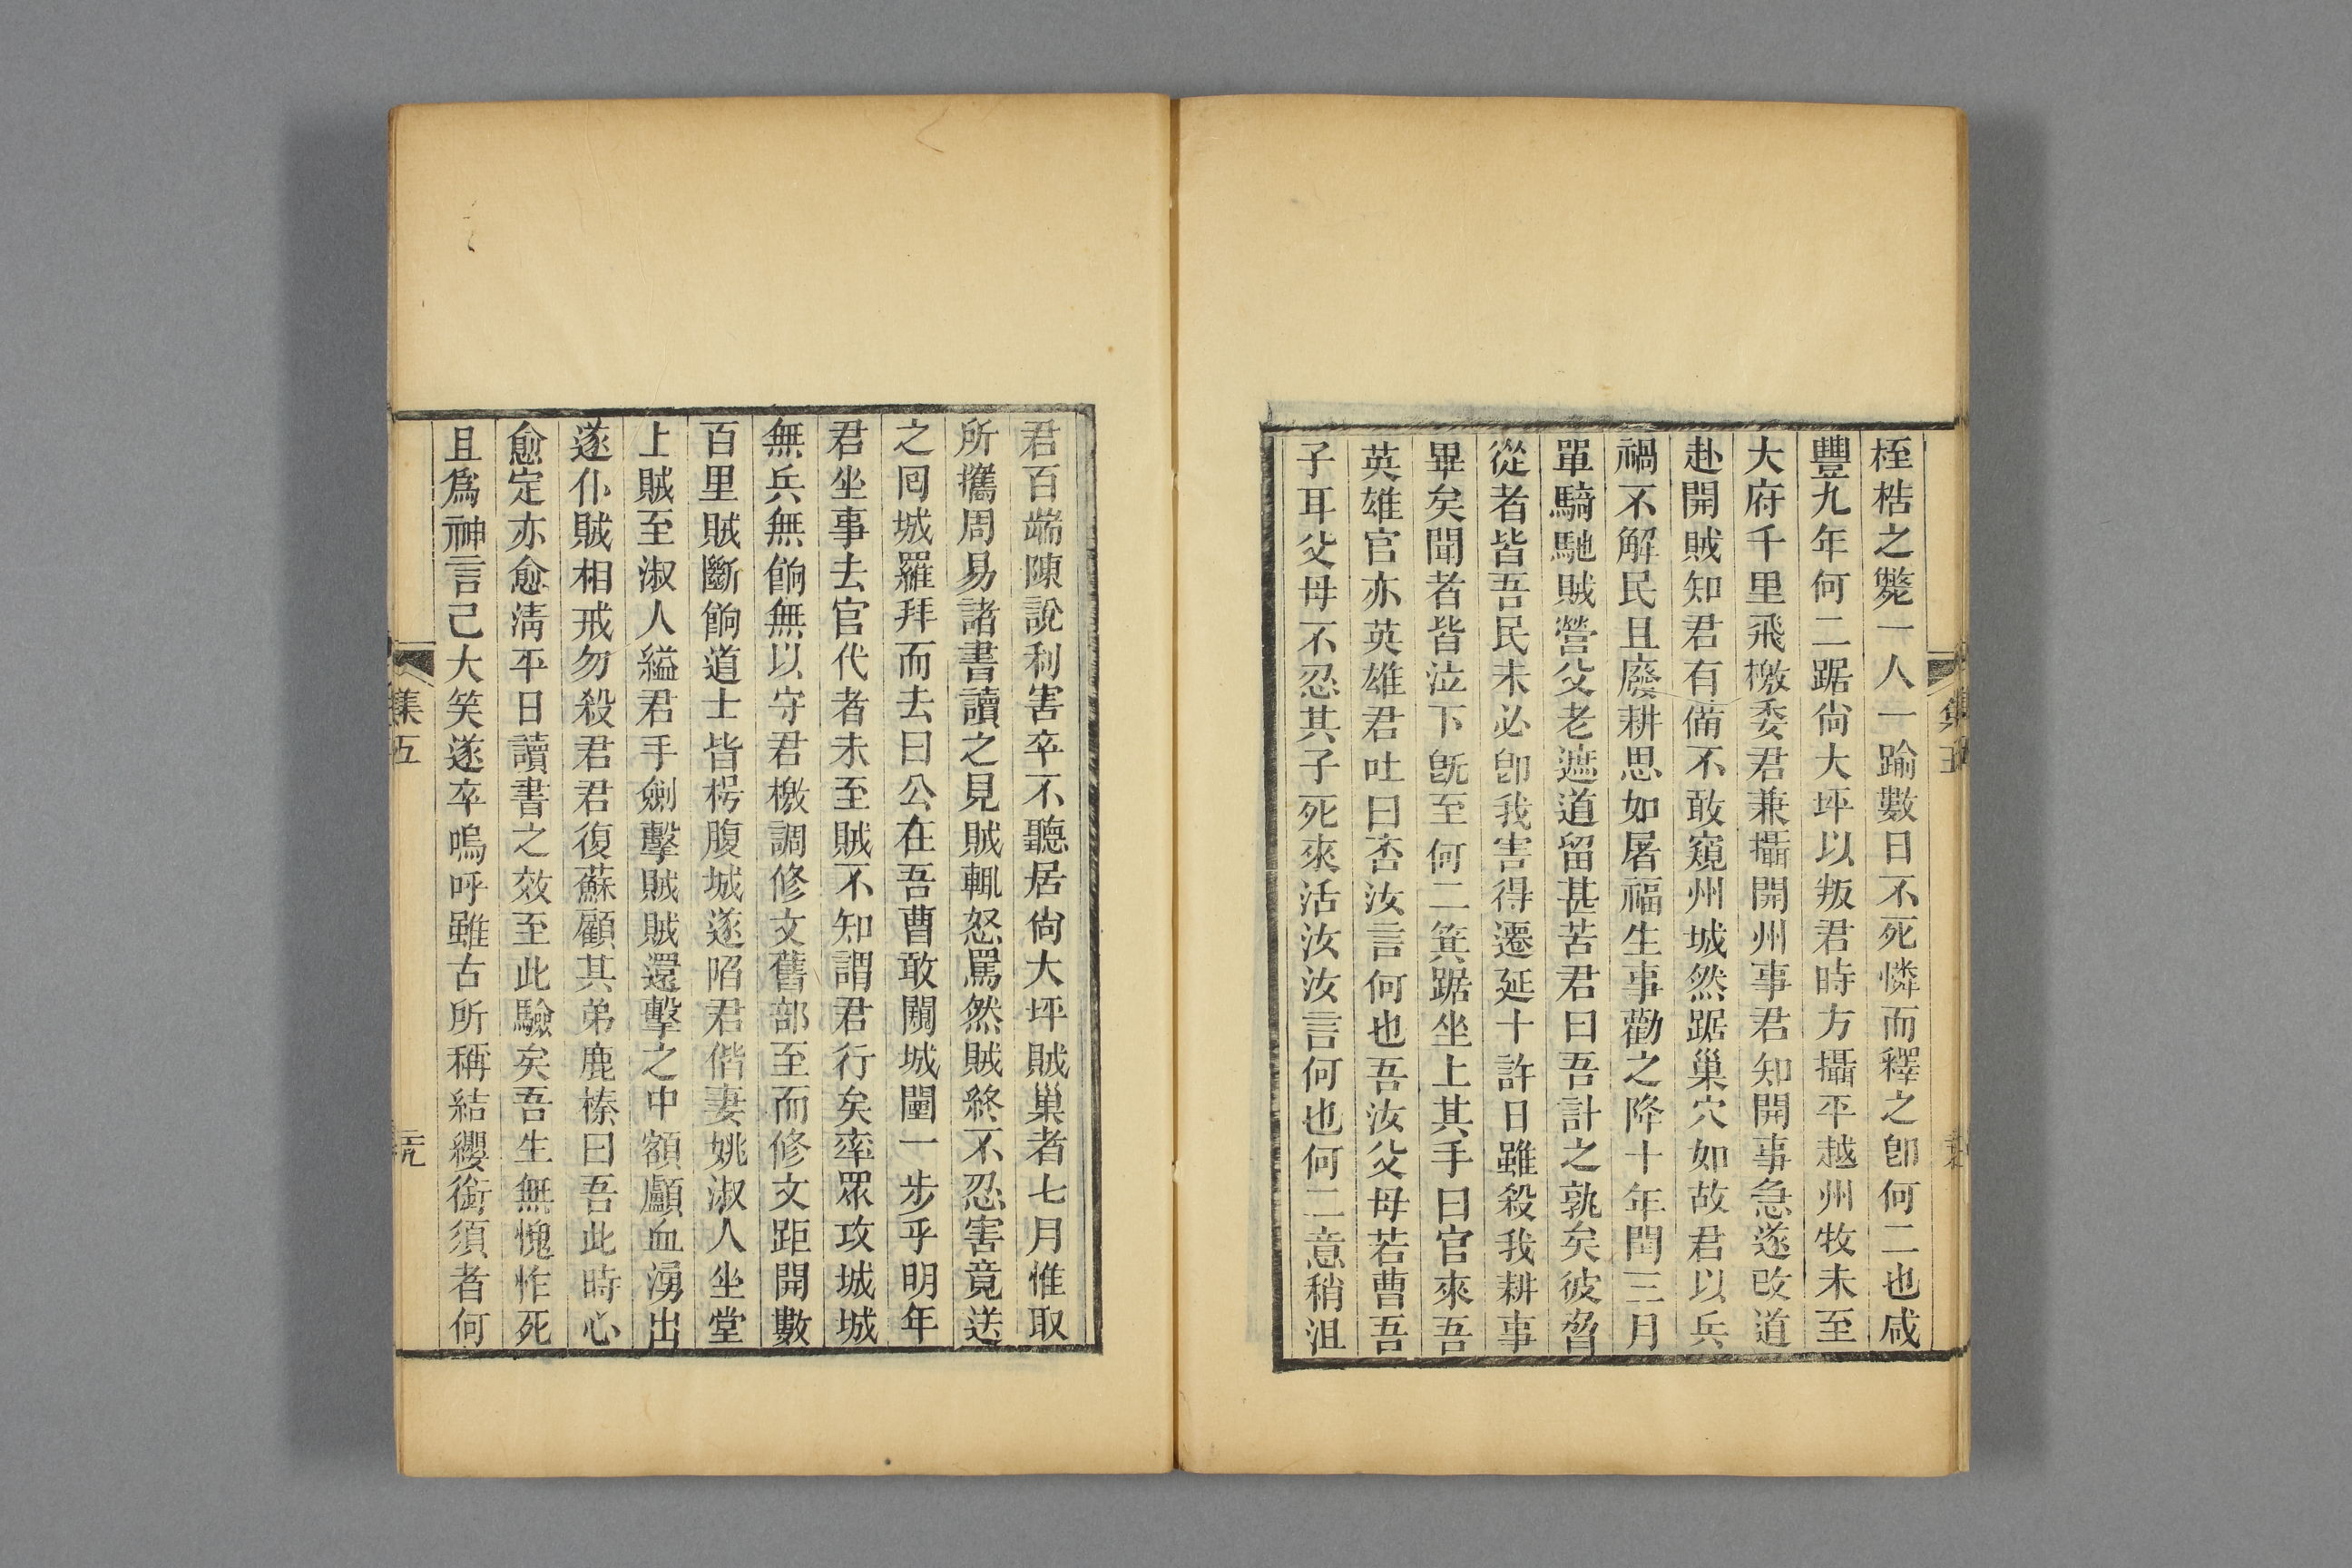 桎梏之斃一人一踰數日不死憐而釋之卽何二也咸
豐九年何二踞尙大坪以叛君時方攝平越州牧未至
大府千里飛檄委君兼攝開州事君知開事急遂改道
赴開賊知君有備不敢窺州城然踞巢穴如故君以兵
禍不解民且廢耕思如屠福生事勸之降十年閏三月
單騎馳賊營父老遮道留甚苦君曰吾計之孰矣彼脅
從者皆吾民未必卽我害得遷延十許日雖殺我耕事
畢矣聞者皆泣下旣至何二箕踞坐上其手曰官來吾
英雄官亦英雄君吐曰否汝言何也吾汝父母若曹吾
子耳父母不忍其子死來活汝汝言何也何二意稍沮
君百端陳說利害卒不聽居尙大坪賊巢者七月惟取
所攜周易諸書讀之見賊輒怒罵然賊終不忍害竟送
之囘城羅拜而去曰公在吾曹敢闚城闉一步乎明年
君坐事去官代者未至賊不知謂君行矣率眾攻城城
無兵無餉無以守君檄調修文舊部至而修文距開數
百里賊斷餉道士皆枵腹城遂陷君偕妻姚淑人坐堂
上賊至淑人縊君手劍擊賊賊還擊之中額顱血湧出
遂仆賊相戒勿殺君君復蘇顧其弟鹿榛曰吾此時心
愈定亦愈淸平日讀書之效至此驗矣吾生無愧怍死
且爲神言已大笑遂卒嗚呼雖古所稱結纓銜須者何
集五